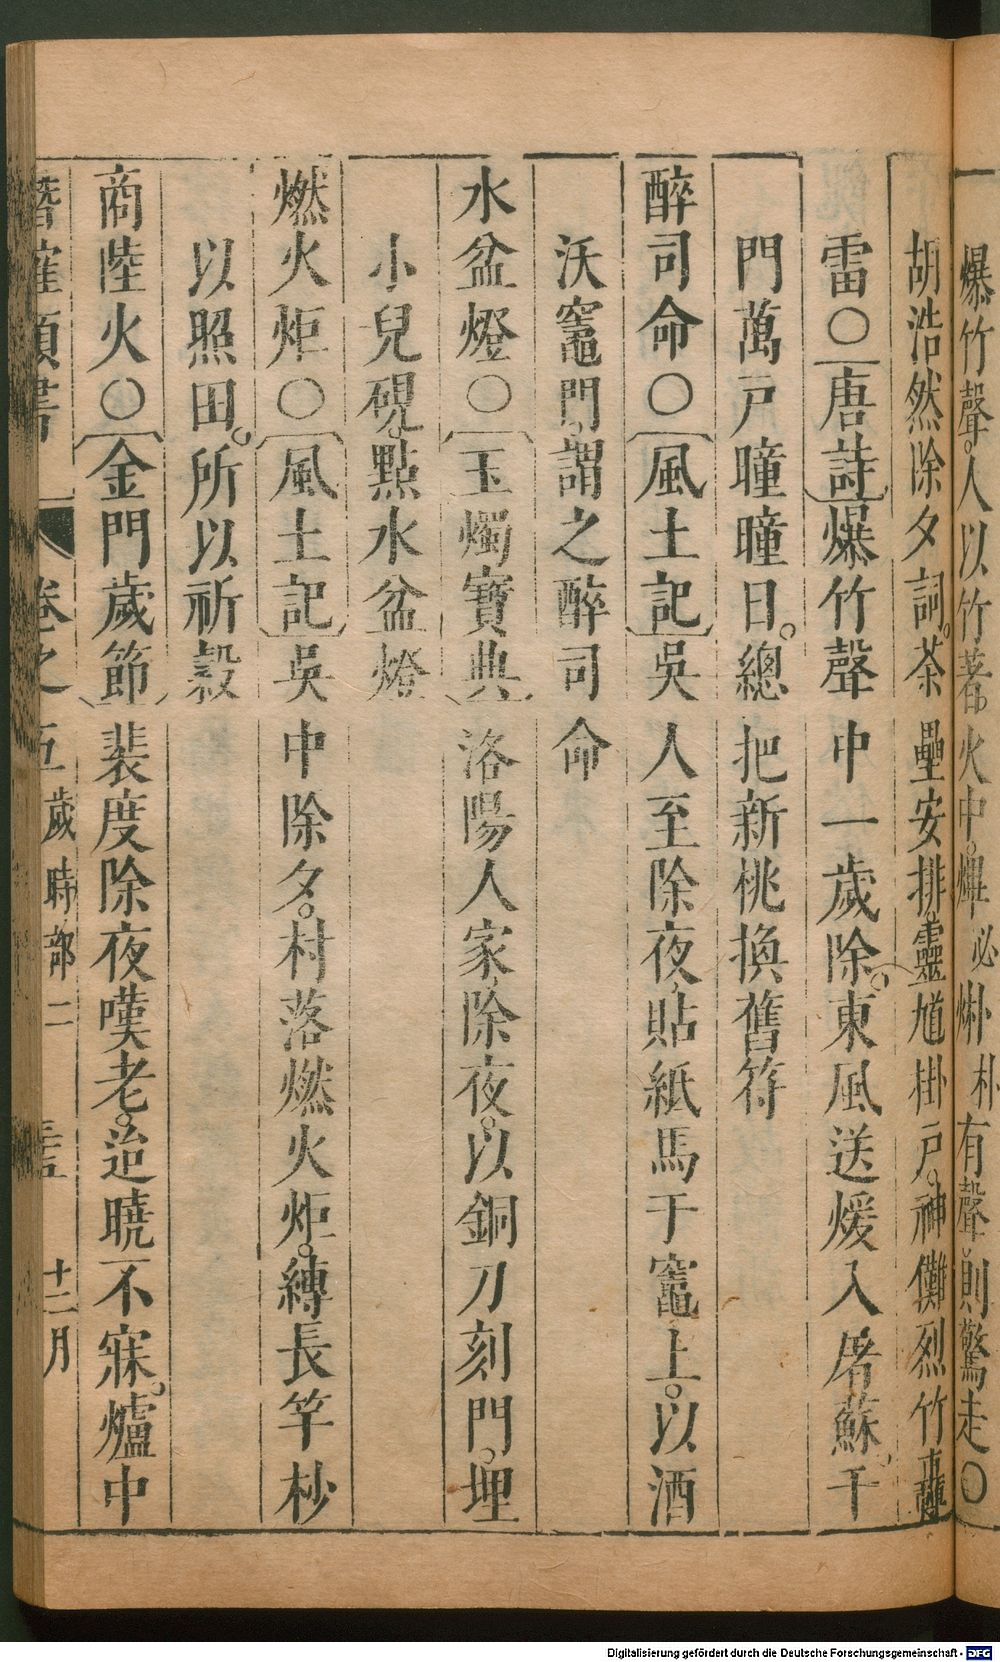 爆竹聲。人以竹著火中。爆必烞朴有聲則驚走〇
胡浩然除夕詞。荼壘安排靈馗掛戸。神儺烈竹轟
雷〇唐詩爆竹聲中一歲除。東風送煖入屠蘇。千
門萬戸曈曈日。總把新桃換舊符
醉司命〇風土記吳人至除夜。貼紙馬于竈上。以酒
沃竈門。謂之醉司命
水盆燈〇玉燭寶典洛陽人家。除夜。以銅刀刻門。埋
小兒硯。點水盆燈
燃火炬〇風土記吳中除夕。村落燃火炬。縛長竿杪
以照田。所以祈穀
商陸火〇金門歲節裴度除夜嘆老。迨曉不寐。爐中
潛確類書 卷之五 歲時部二 十二月
Digitalisierung gefördert durch die Deutsche Forschungsgemeinschaft - DFG